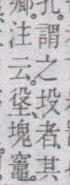 謂之坄者其
鄭注云垼塊竈